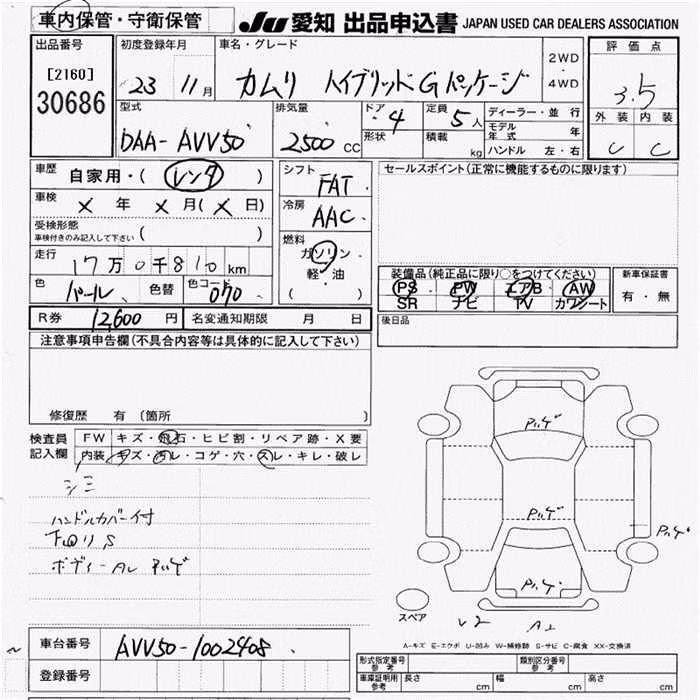 車内保管・守衛保管
JU 愛知 出品申込書 JAPAN USED CAR DEALERS ASSOCIATION
出品番号
[2160]
30686
初度登録年月
23 11月
車名・グレード
カムリ ハイブリッドGパッケージ
2WD
・
4WD
評価点
3.5
外装 内装
C C
型式
DAA-AVV50
排気量
2500 CC
ドア
・4
形状
定員
5人
積載
kg
ディーラー・並行
モデル年式 年
ハンドル 左・右
車歴
自家用・( レンタ )
車検
X 年 X 月( X 日)
受検形態
車検付きのみ記入して下さい ( )
走行
17万0千810km
色
パール
色替
色コード
070
シフト
FAT
冷房
AAC
燃料
ガソリン
軽・油
( )
セールスポイント(正常に機能するものに限ります)
装備品(純正品に限り○をつけてください)
PS PW エアB AW
SR ナビ TV カワシート
新車保証書
有・無
R券 12,600円
名変通知期限 月 日
後日品
注意事項申告欄(不具合内容等は具体的に記入して下さい)
修復歴 有 (箇所 )
検査員
記入欄
FW キズ・飛石・ヒビ割・リペア跡・X要
内装 キズ・汚レ・コゲ・穴・スレ・キレ・破レ
シミ
ハンドルカバー付
ボディーAL
スペア
A2
A-キズ E-エクボ U-凹み W-補修跡 S-サビ C-腐食 XX-交換済
車台番号
AVV50-1002408
登録番号
形式指定番号
参考
類別区分番号
参考
車庫証明用
参考
長さ cm
幅 cm
高さ cm